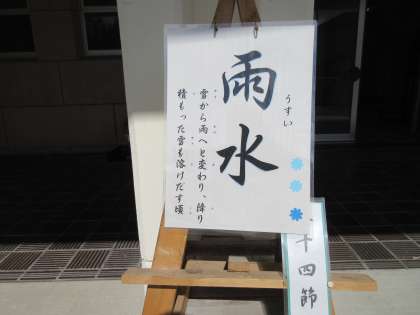 雨水
うすい
雪から雨へと変わり、降り
積もった雪も溶けだす頃
十四節